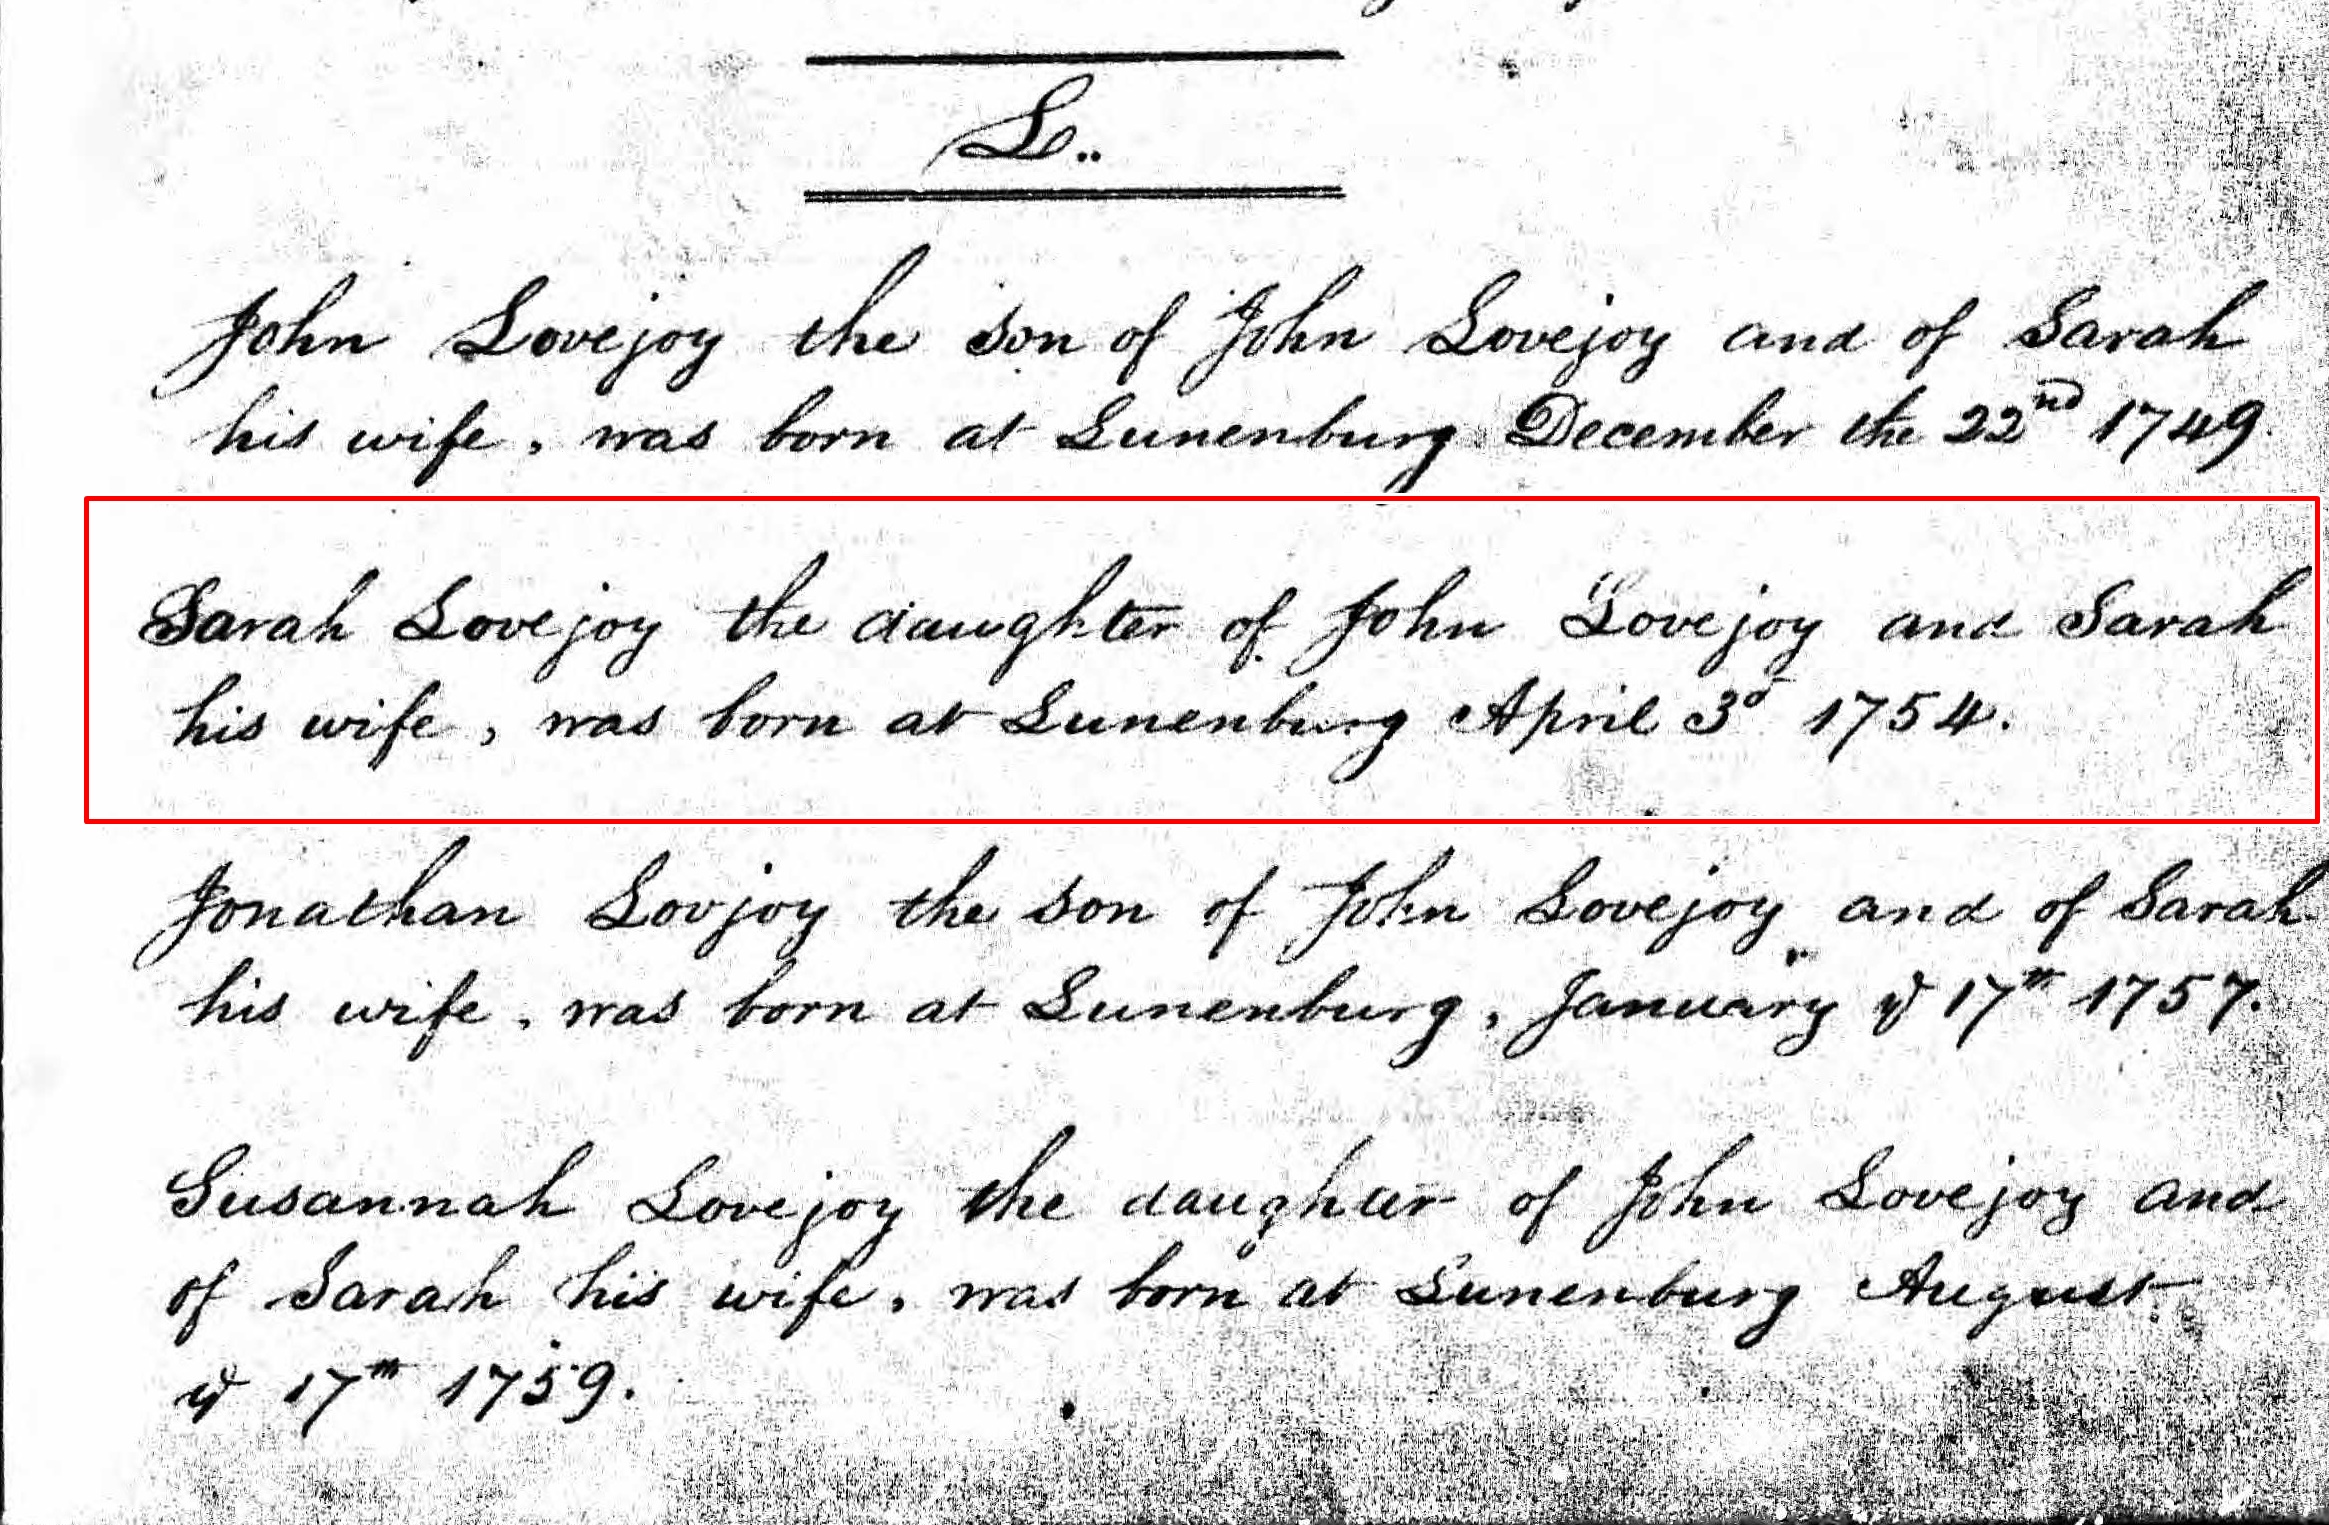 L..
John Lovejoy the son of John Lovejoy and of Sarah
his wife, was born at Lunenburg December the 22nd 1749.
Sarah Lovejoy the daughter of John Lovejoy and Sarah
his wife, was born at Lunenburg April 3d 1754.
Jonathan Lovjoy the son of John Lovejoy and of Sarah
his wife, was born at Lunenburg, January ye 17th 1757.
Susannah Lovejoy the daughter of John Lovejoy and
of Sarah his wife, was born at Lunenburg August
ye 17th 1759.